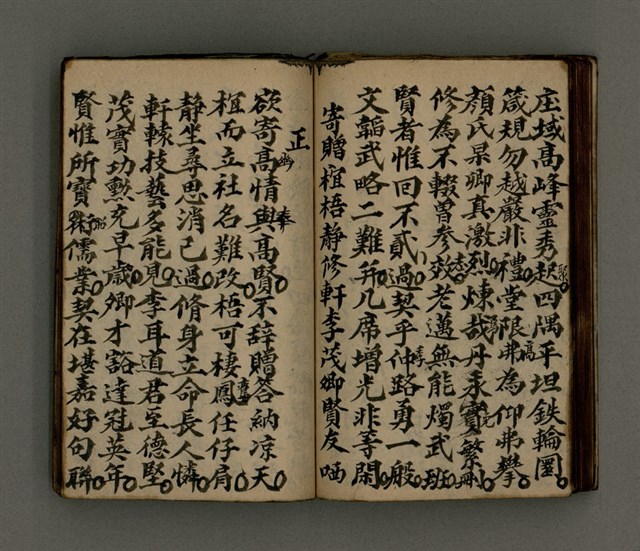 庄域高峰靈秀起四隅平坦鉄輪圍
箴規勿越嚴非禮堂限弗為仰弗攀
顏氏杲卿真激烈煉哉丹汞寶繁刪
修為不輟曾參效老邁無能燭武班
賢者惟回不貳過契乎仲路勇一般
文韜武略二難并几席增光非等閑
寄贈椬梧靜修軒李茂卿賢友哂
正
欲寄高情與高賢不辭贈答納凉天
椬而立社名難改梧可棲鳳任仔肩
靜坐尋思消己過脩身立命長人憐
軒轅技藝多能見李耳道君至德堅
茂實功勲充早歲卿才豁達冠英年
賢惟所寶衛儒業契在堪嘉好句聯